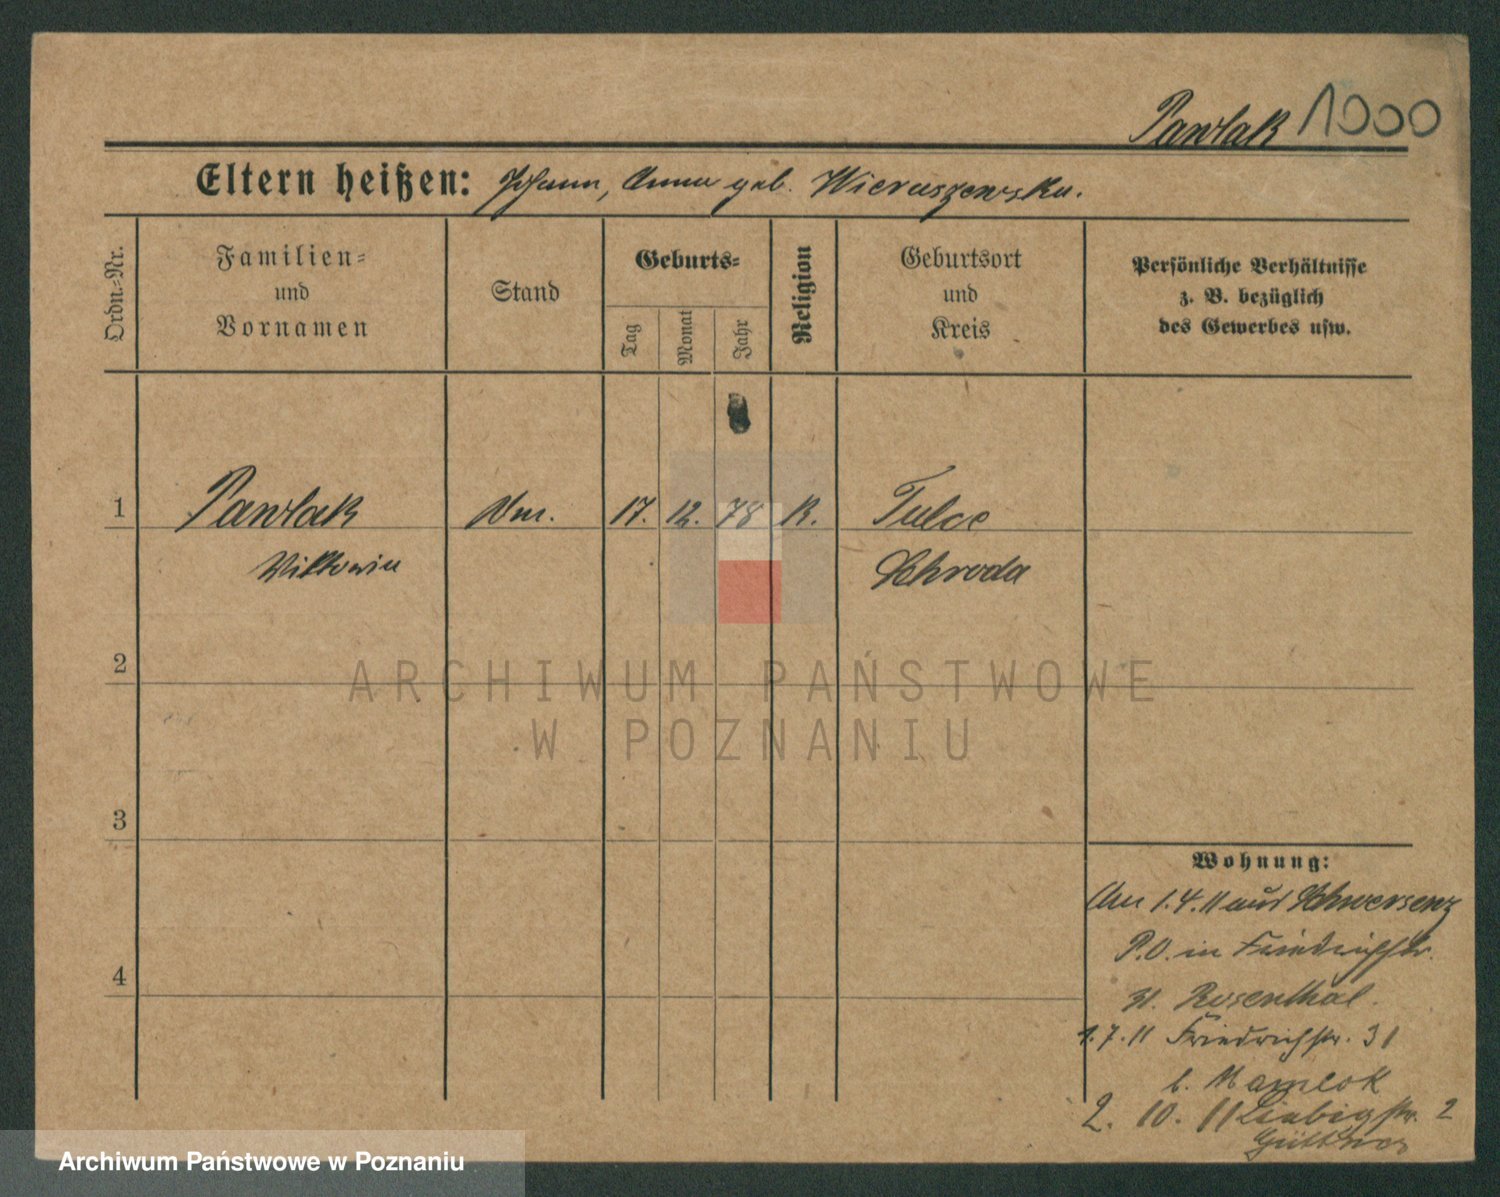 Pawlak 1000
Eltern heißen: Johann, Anna geb. Wieruszewska.
Ordn.=Nr.
Familien=
und
Vornamen
Stand
Geburts=
Tag
Monat
Jahr
Religion
Geburtsort
und
Kreis
Persönliche Verhältnisse
z. B. bezüglich
des Gewerbes usw.
1 Pawlak 17. 12. 78 K. Tulce
Viktoria Schroda
2
ARCHIWUM PAŃSTWOWE
W POZNANIU
3
Wohnung:
Am 1.4.11 aus Schwersenz
P.O. in Friedrichstr.
31. Rosenthal.
4
1.7.11 Friedrichstr. 31
b. Mamlok
2. 10. 11 Liebigstr. 2
Güttner
Archiwum Państwowe w Poznaniu